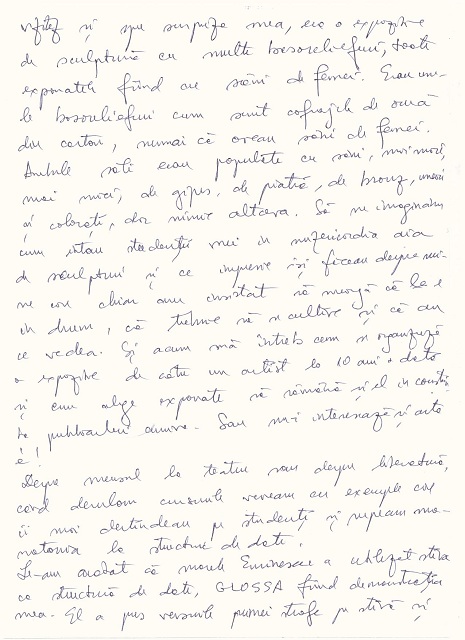 vizitez și spre surpriza mea, era o expoziție
de sculptură cu multe basoreliefuri, toate
exponatele fiind cu sâni de femei. Erau une-
le basoreliefuri cum sunt cofrajele de ouă
din carton, numai că aveau sâni de femei.
Ambele săli erau populate cu sâni, mai mari,
mai mici, de gips, de piatră, de bronz, unii
și colorați, dar nimic altceva. Să ne imaginăm
cum intrau studenții mei în mizericordia aia
de sculpturi și ce impresie își făceau despre mi-
ne care chiar am insistat să meargă că la e
în drum, că trebuie să se cultive și că au
ce vedea. Și acum mă întreb cum se organizează
o expoziție de către un artist la 10 ani o dată
și cum alege exponate să rămână și el în conștiin
ța publicului cumva. Sau nu-i interesează și arta
e!
Despre mersul la teatru sau despre literatură,
când derulam cursurile veneam cu exemple care
îi mai destindeau pe studenți și rupeam mo-
notonia la structuri de date.
Le-am arătat că marele Eminescu a utilizat stiva
ca structură de date, GLOSSA fiind demonstrația
mea. El a pus versurile primei strofe pe stivă și